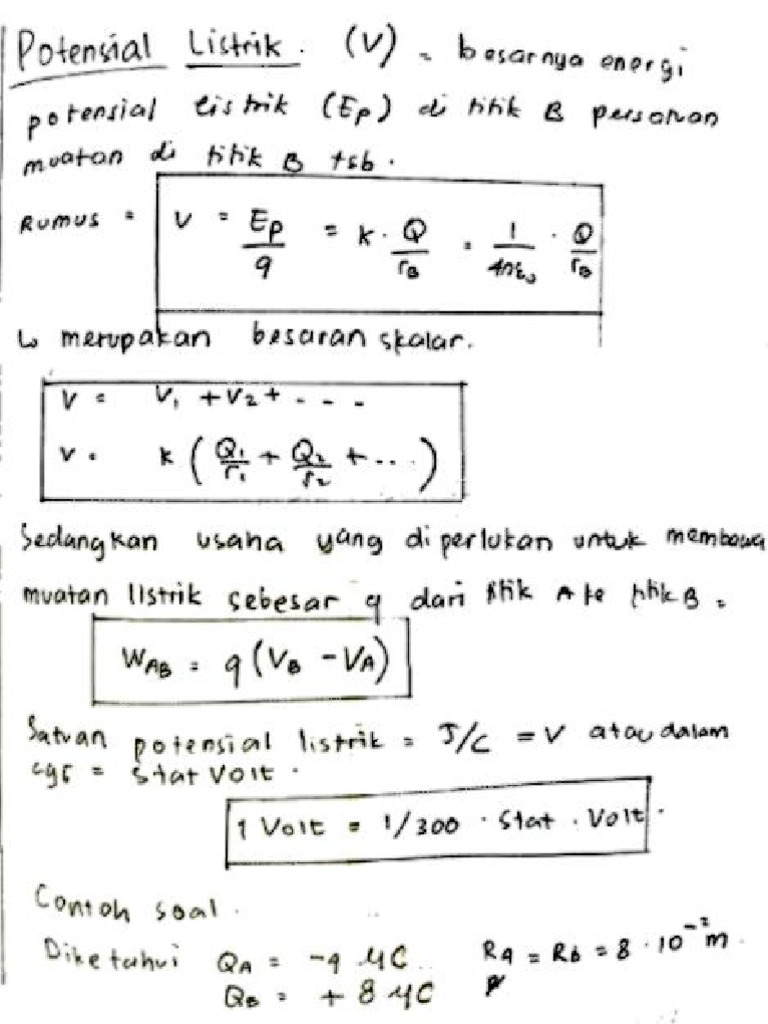 Potensial Listrik. (V) = besarnya energi
potensial listrik (Ep) di titik B persatuan
muatan di titik B tsb.
Rumus = V = Ep/q = k . Q/rB = 1/4πε₀ . Q/rB
↳ merupakan besaran skalar.
V = V₁ + V₂ + - - -
V = k (Q₁/r₁ + Q₂/r₂ + ...)
Sedangkan usaha yang diperlukan untuk membawa
muatan listrik sebesar q dari titik A ke titik B =
WAB = q (VB - VA)
Satuan potensial listrik = J/C = V atau dalam
cgs = Stat Volt.
1 Volt = 1/300 . Stat . Volt.
Contoh soal.
Diketahui QA = -4 μC RA = Rb = 8 . 10⁻² m
QB = + 8 μC